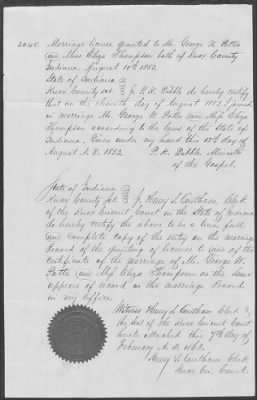 2040. Marriage license granted to Mr. George W. Potter
and Miss Eliza Thompson both of Knox County
Indiana August 10th 1852.
State of Indiana
Knox County Sct. I P. K. Dibble do hereby certify
that on the eleventh day of August 1852 I joined
in marriage Mr. George W. Potter and Miss Eliza
Thompson according to the laws of the State of
Indiana. Given under my hand this 13th day of
August A.D. 1852. P. K. Dibble Minister
of the Gospel.
State of Indiana
Knox County Sct I, Henry S. Cauthorn Clerk
of the Knox Circuit Court in the State of Indiana
do hereby certify the above to be a true, full
and complete copy of the entry on the marriage
Record of the granting of license to and of the
certificate of the marriage of Mr. George W.
Potter and Miss Eliza Thompson as the same
appears of record in the marriage Record
in my office.
Witness Henry S. Cauthorn Clerk &
the seal of the Knox Circuit Court
hereto attached this 7th day of
February A.D. 186
Henry S. Cauthorn Clerk
Knox Cir. Court.